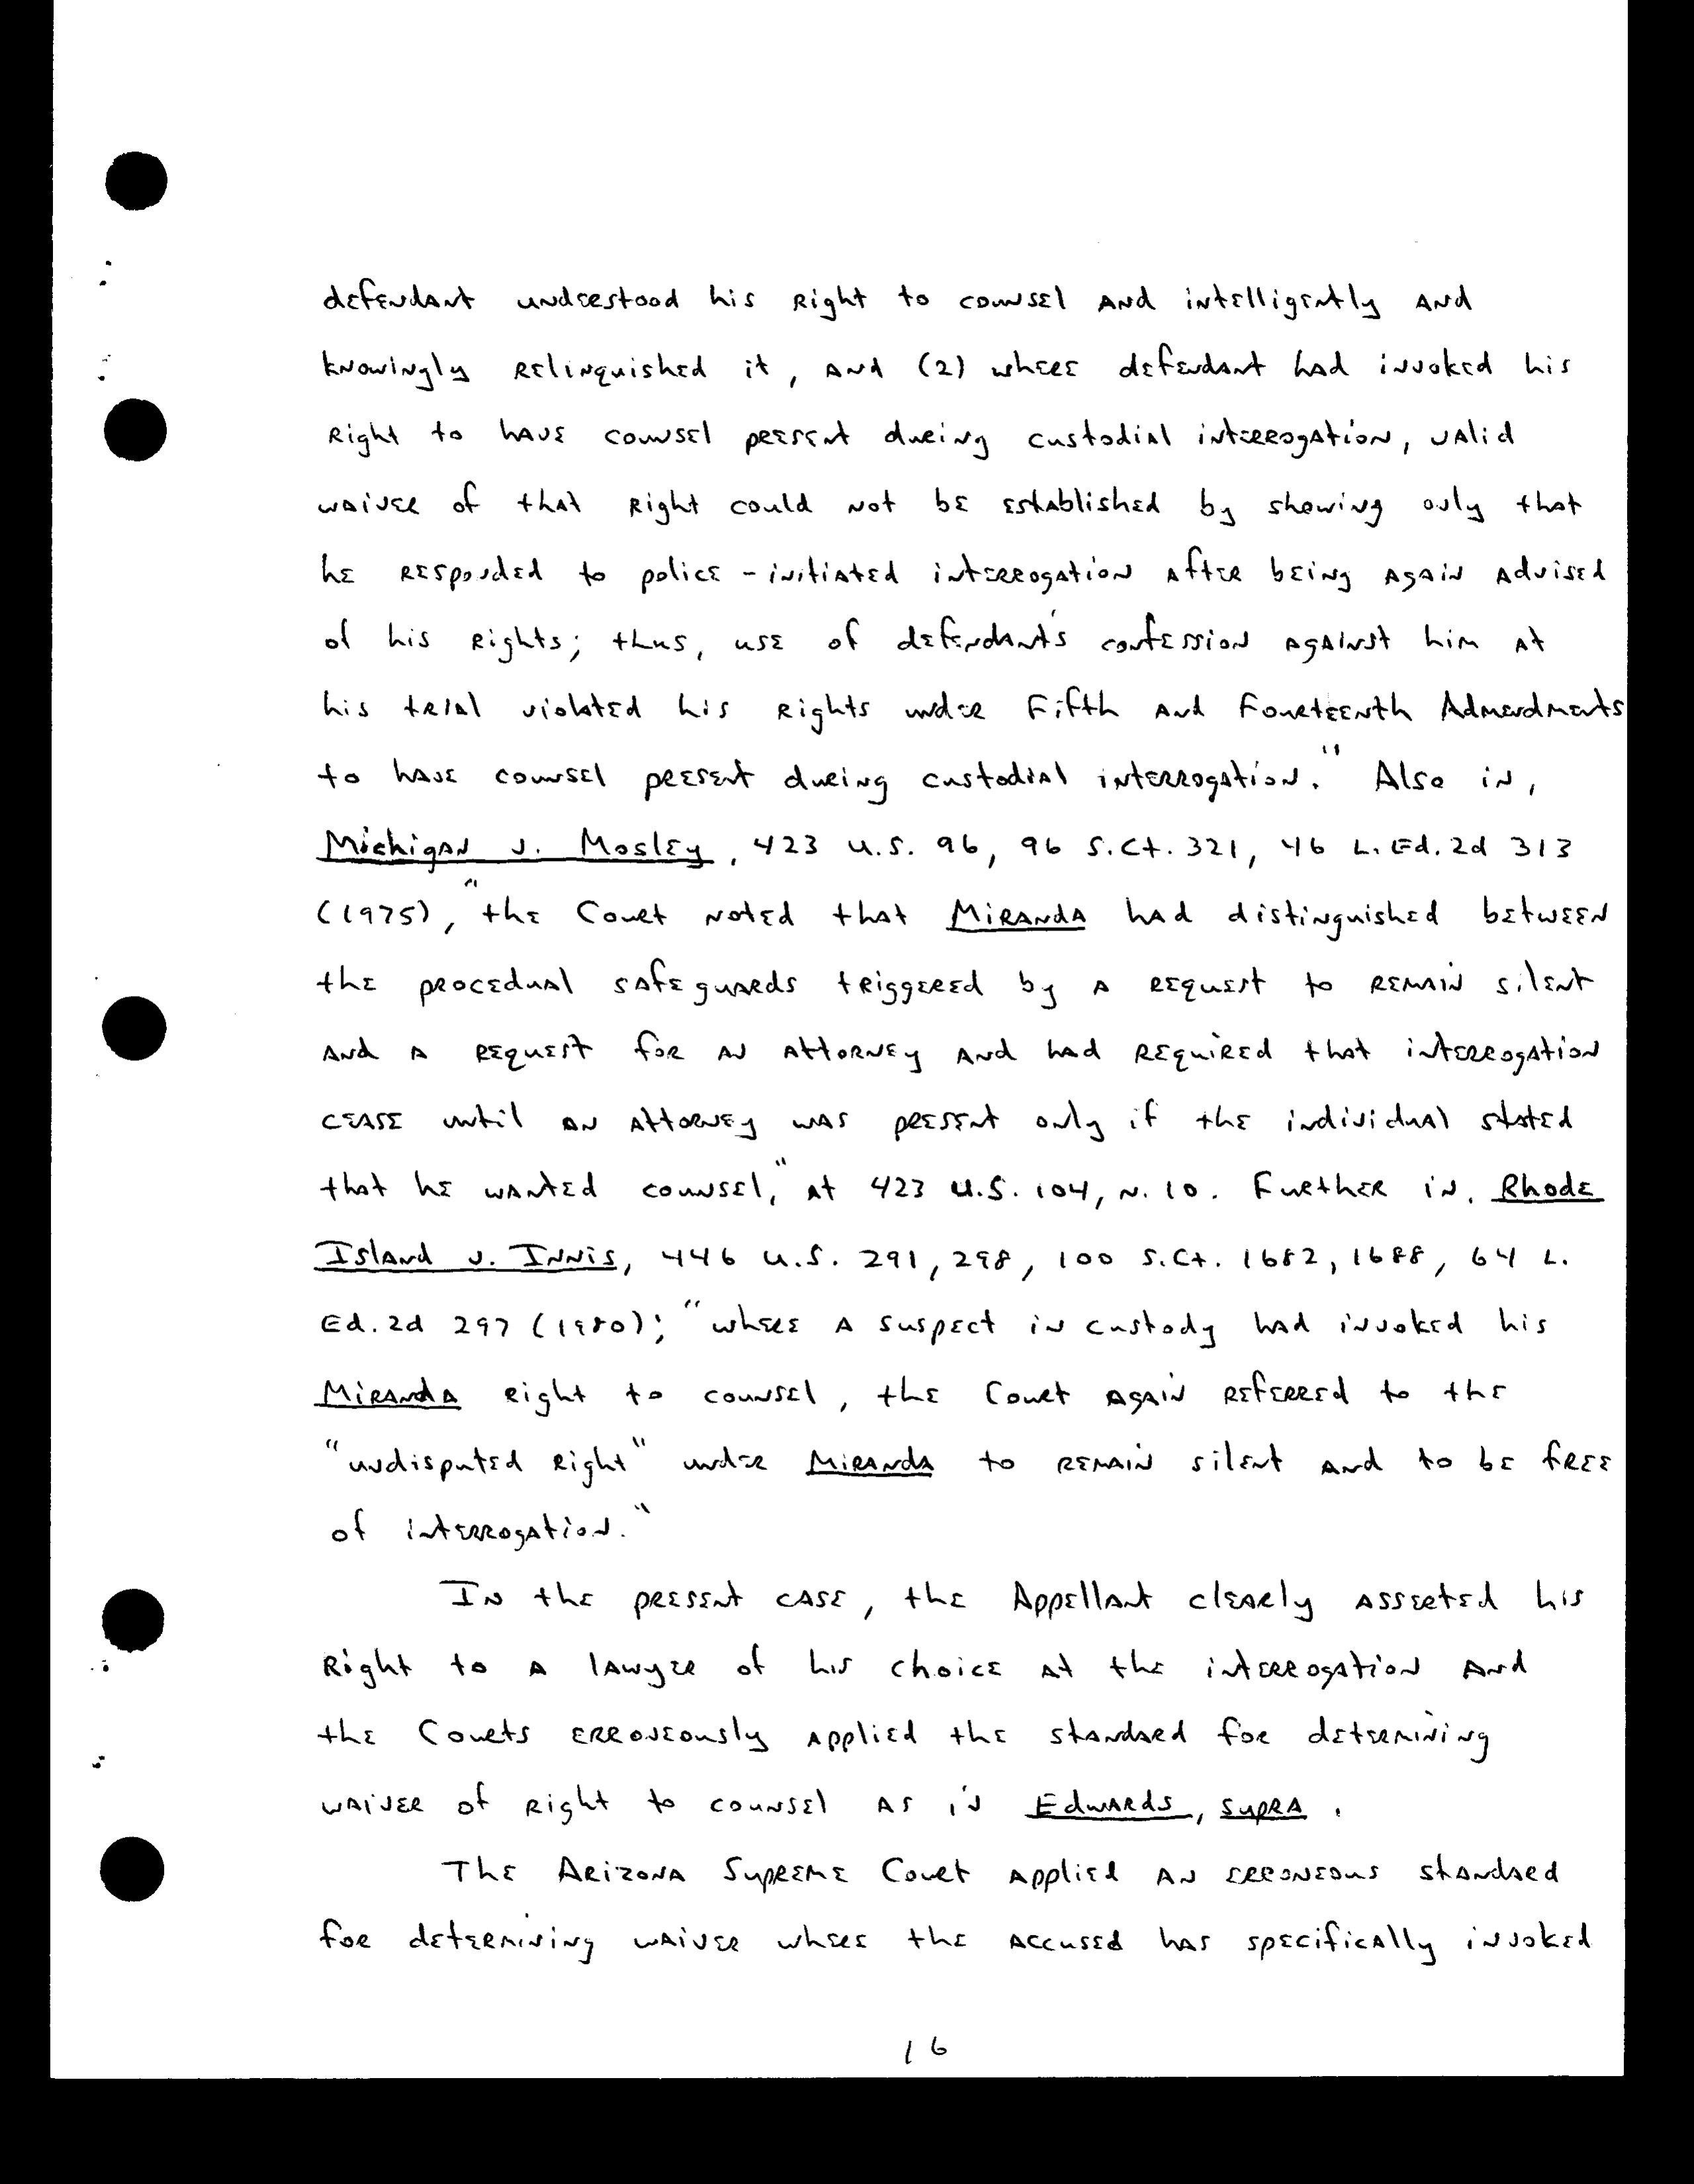 defendant understood his right to counsel and intelligently and
knowingly relinquished it, and (2) where defendant had invoked his
right to have counsel present during custodial interrogation, valid
waiver of that right could not be established by showing only that
he responded to police-initiated interrogation after being again advised
of his rights; thus, use of defendant's confession against him at
his trial violated his rights under Fifth and Fourteenth Admendments
to have counsel present during custodial interrogation." Also in,
Michigan v. Mosley, 423 U.S. 96, 96 S.Ct. 321, 46 L.Ed.2d 313
(1975), "the Court noted that Miranda had distinguished between
the procedual safeguards triggered by a request to remain silent
and a request for an attorney and had required that interrogation
cease until an attorney was present only if the individual stated
that he wanted counsel," at 423 U.S. 104, N.10. Further in, Rhode
Island v. Innis, 446 U.S. 291, 298, 100 S.Ct. 1682, 1688, 64 L.
Ed.2d 297 (1980); "where a suspect in custody had invoked his
Miranda right to counsel, the Court again referred to the
"undisputed right" under Miranda to remain silent and to be free
of interrogation."
In the present case, the Appellant clearly asserted his
right to a lawyer of his choice at the interrogation and
the Courts erroneously applied the standard for determining
waiver of right to counsel as in Edwards, supra.
The Arizona Supreme Court applied an erroneous standard
for determining waiver where the accused has specifically invoked
16